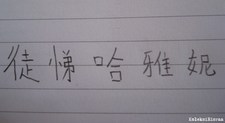 徒悌哈雅妮